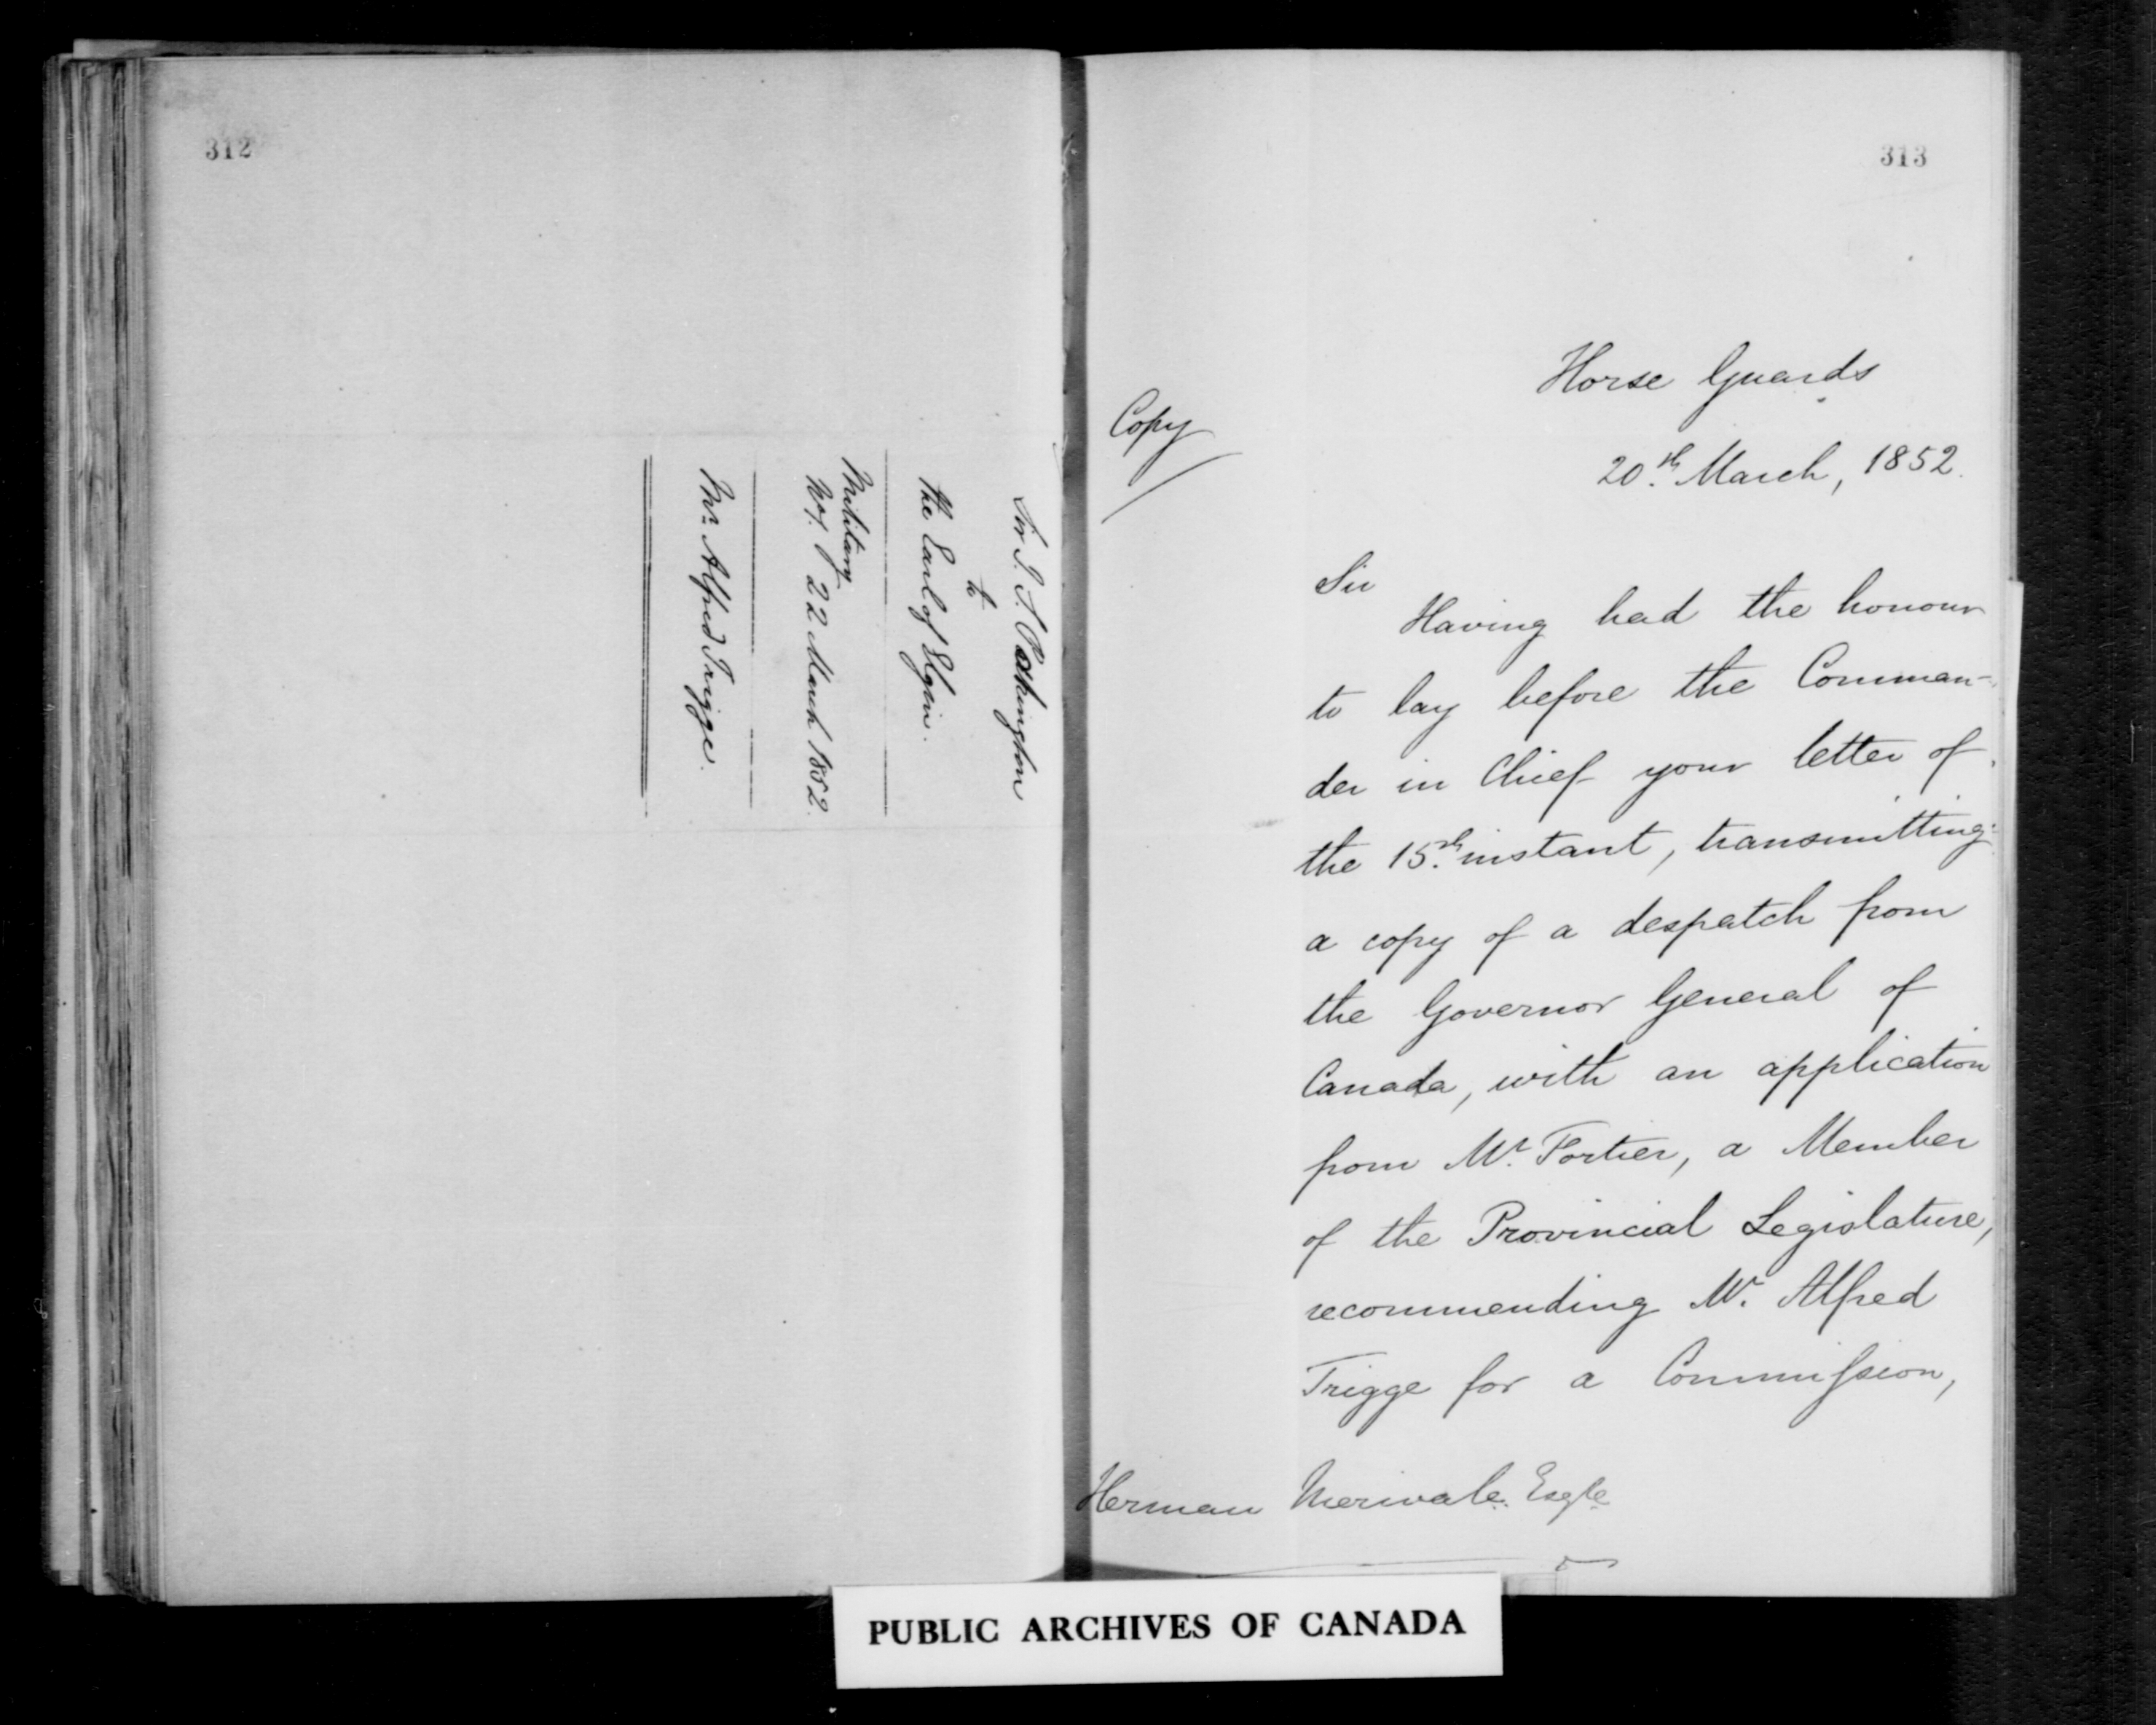 312
Sir J. S. Pakington
to
the Earl of Elgin.
Military
22 March 1852.
Mr. Alfred Trigge.
313
Copy
Horse Guards
20th March, 1852.
Sir
Having had the honour
to lay before the Comman-
der in Chief your letter of
the 15th instant, transmitting
a copy of a despatch from
the Governor General of
Canada, with an application
from Mr. Fortier, a Member
of the Provincial Legislature,
recommending Mr. Alfred
Trigge for a Commission,
Herman Merivale Esqre
PUBLIC ARCHIVES OF CANADA